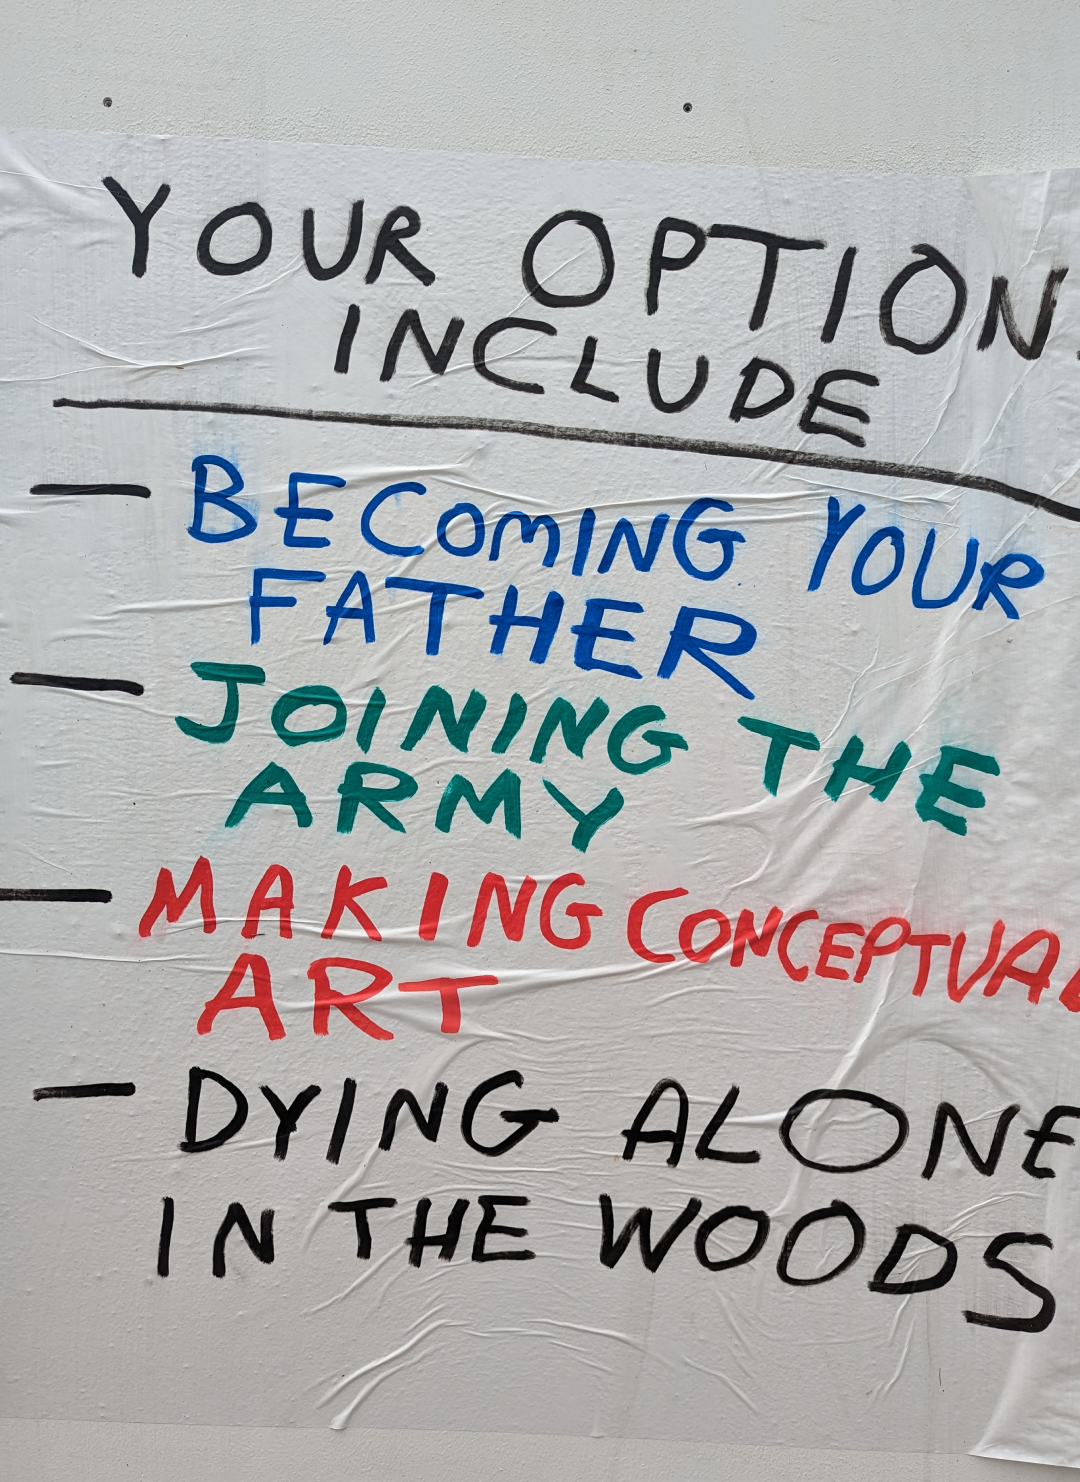 YOUR OPTION
INCLUDE
— BECOMING YOUR
FATHER
— JOINING THE
ARMY
— MAKING CONCEPTUAL
ART
— DYING ALONE
IN THE WOODS